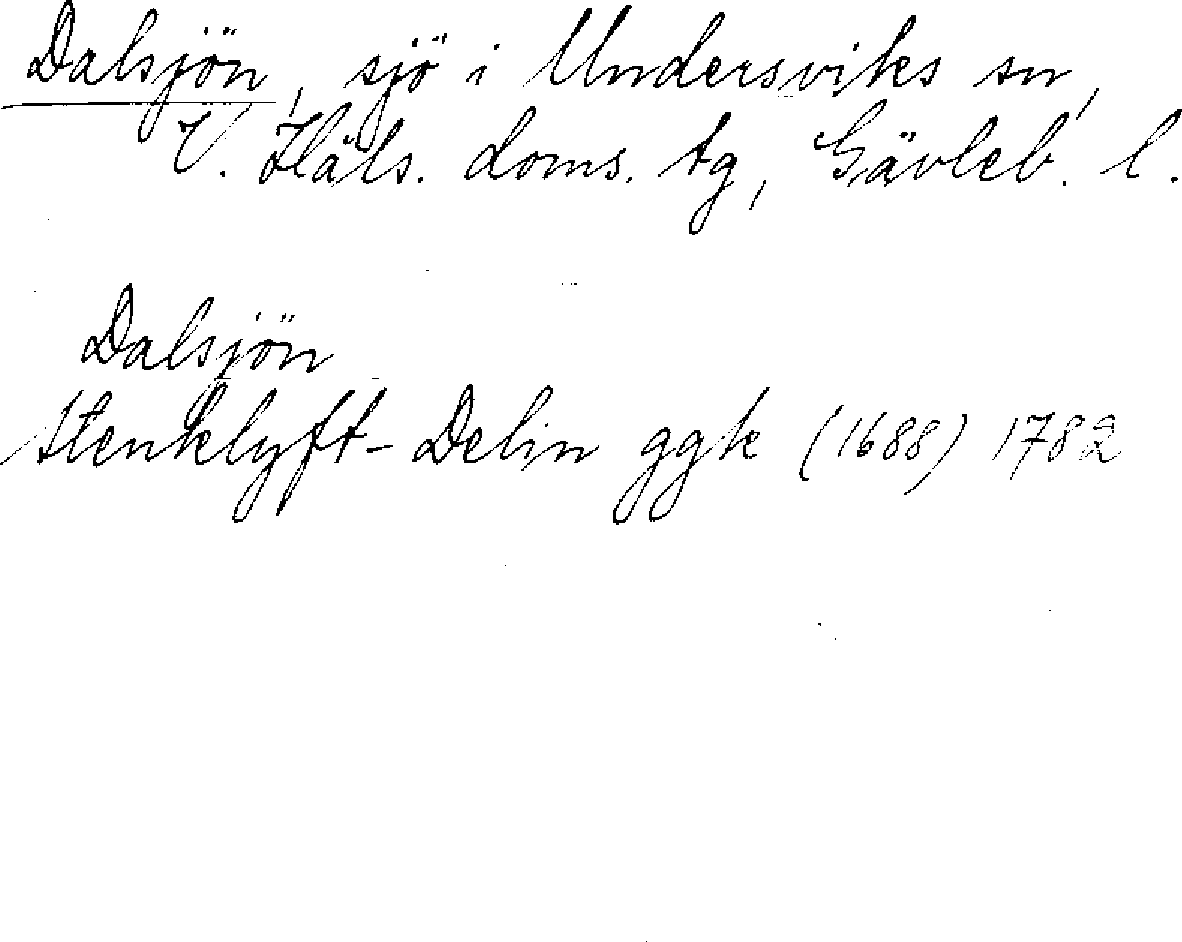 Dalsjön, sjö i Undersviks sn,
V. Häls. doms. tg, Gävleb. l.
Dalsjön
Stenklyft - Delin ggk (1688) 1782